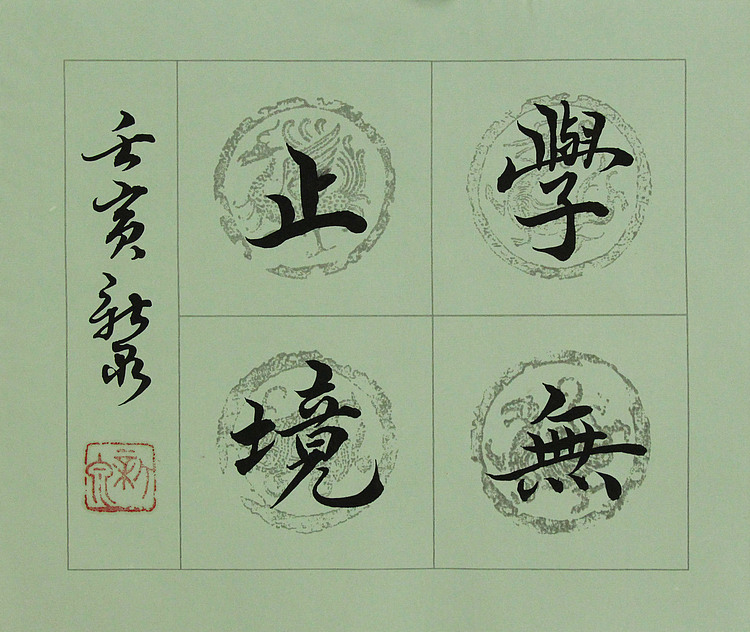 學無
止境
壬寅新泉
新泉